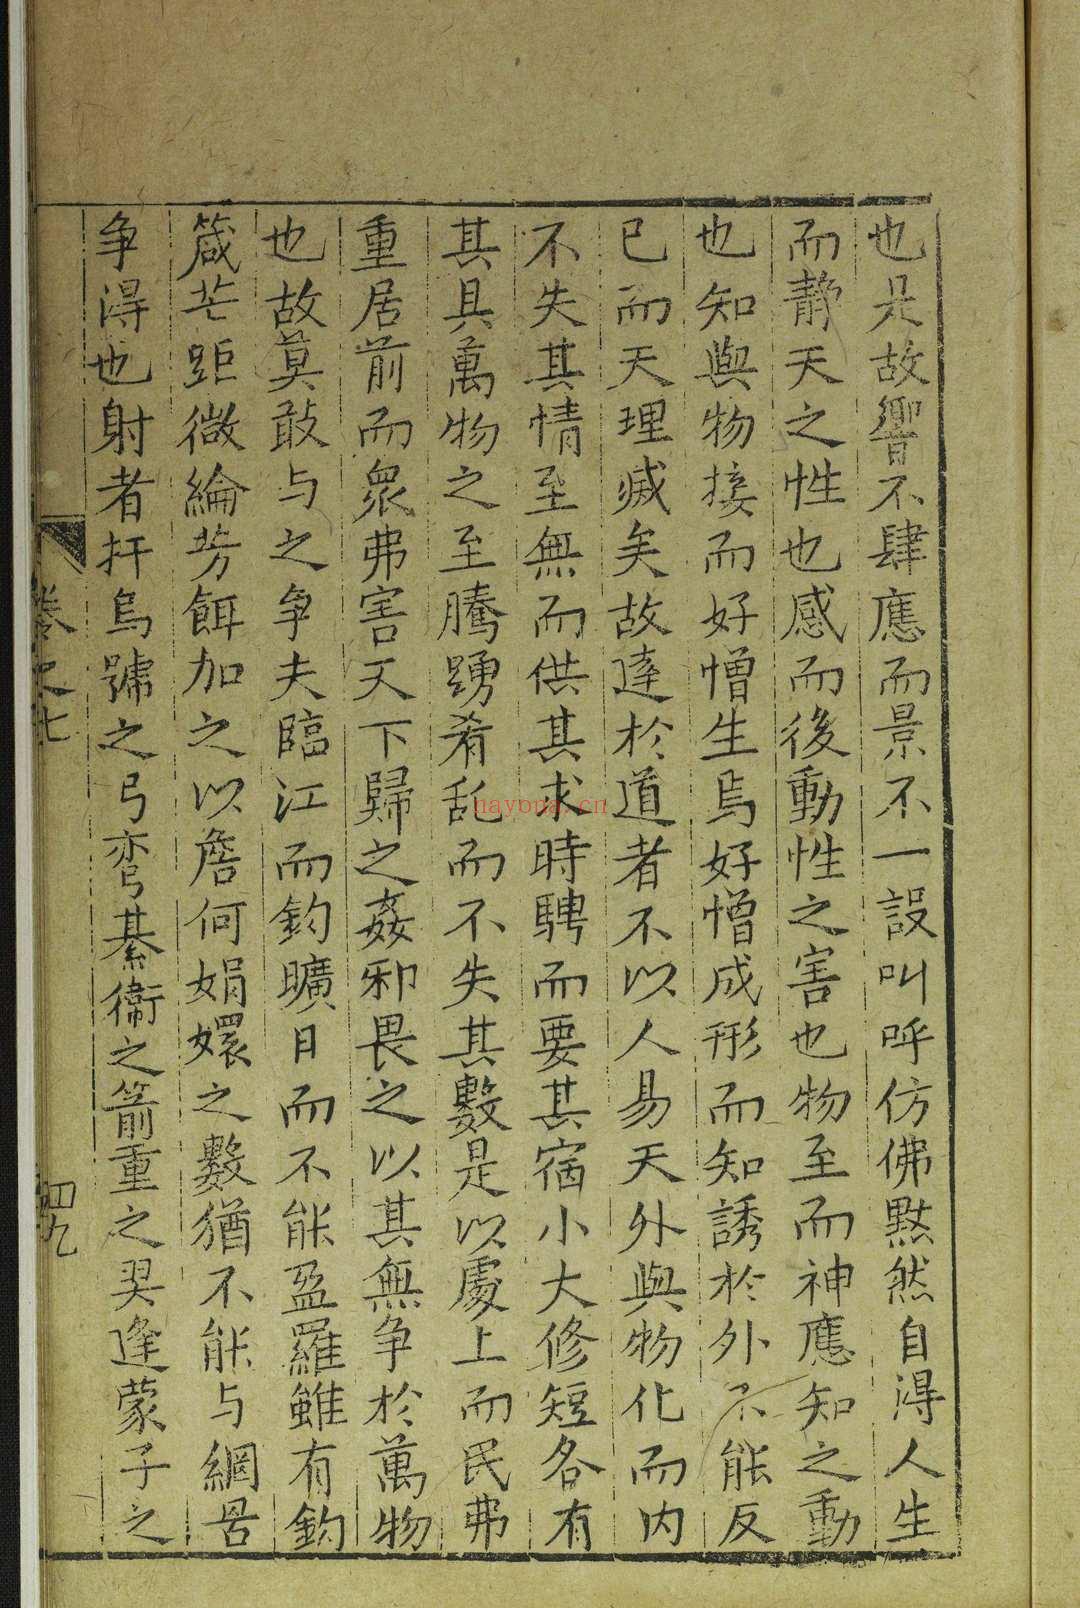 也是故響不肆應而景不一設叫呼仿佛黙然自得人生
而静天之性也感而後動性之害也物至而神應知之動
也知與物接而好憎生焉好憎成形而知誘於外不能反
已而天理滅矣故達於道者不以人易天外與物化而内
不失其情至無而供其求時騁而要其宿小大修短各有
其具萬物之至騰踴肴乱而不失其數是以處上而民弗
重居前而衆弗害天下歸之姦邪畏之以其無争於萬物
也故莫敢与之争夫臨江而釣曠日而不能盈羅雖有鈎
箴芒距微綸芳餌加之以詹何娟嬛之數猶不能与網罟
争得也射者扜烏號之弓彎綦衛之箭重之羿逢蒙子之
卷之七
四九
nayona.cn